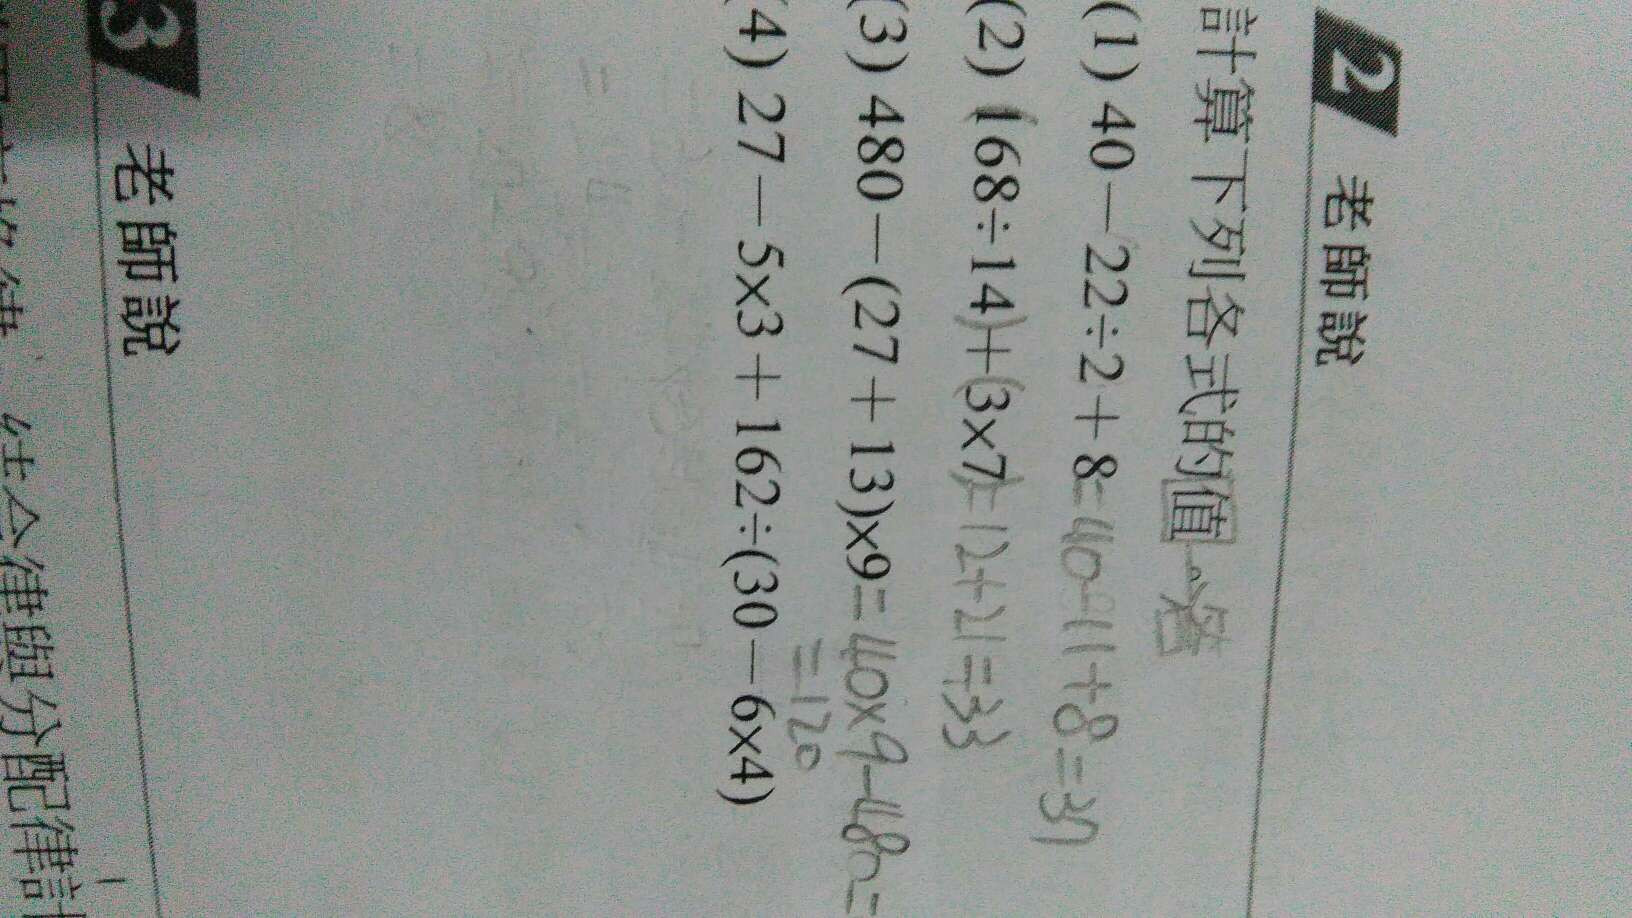 2 老師說
計算下列各式的值→答
(1) 40－22÷2＋8=40-11+8=37
(2) (168÷14)＋(3×7)=12+21=33
(3) 480－(27＋13)×9=40×9-480=
=120
(4) 27－5×3＋162÷(30－6×4)
3 老師說
結合律與分配律計